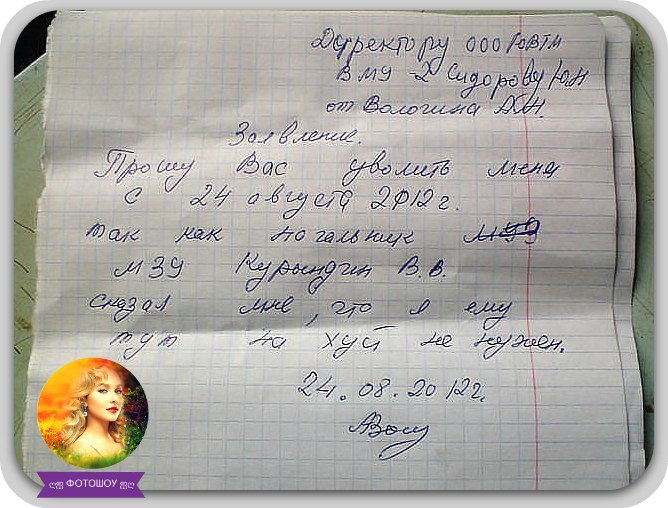 Директору ООО ЮВТМ
ВМУ-2 Сидорову Ю.Н
от Вологина А.Н.
Заявление.
Прошу Вас уволить меня
с 24 августа 2012г.
так как начальник
МЗУ Курындин В.В.
сказал мне, что я ему
тут на хуй не нужен.
24.08.2012г.
ФОТОШОУ